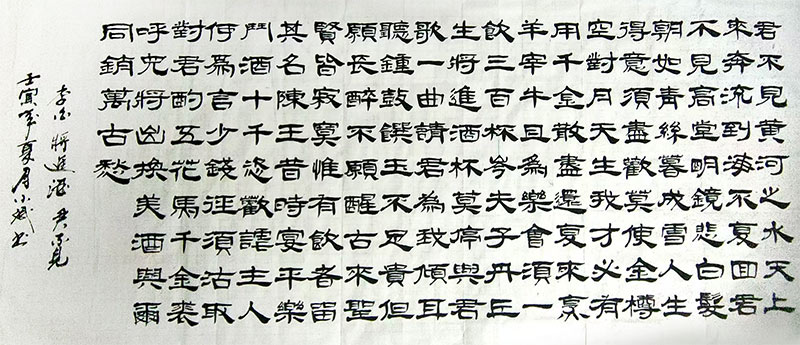 君不見黃河之水天上
來奔流到海不复回君
不見高堂明鏡悲白髮
朝如青絲暮成雪人生
得意須盡歡莫使金樽
空對月天生我才必有
用千金散盡還复來烹
羊宰牛且為樂會須一
飲三百杯岑夫子丹丘
生將進酒杯莫停與君
歌一曲請君為我傾耳
聽鍾鼓饌玉不足貴但
願長醉不願醒古來聖
賢皆寂寞惟有飲者留
其名陳王昔時宴平樂
鬥酒十千恣歡謔主人
何為言少錢徑須沽取
對君酌五花馬千金裘
呼兒將出換美酒與爾
同銷萬古愁
李白 將進酒 君不見
壬寅年夏月小斌書